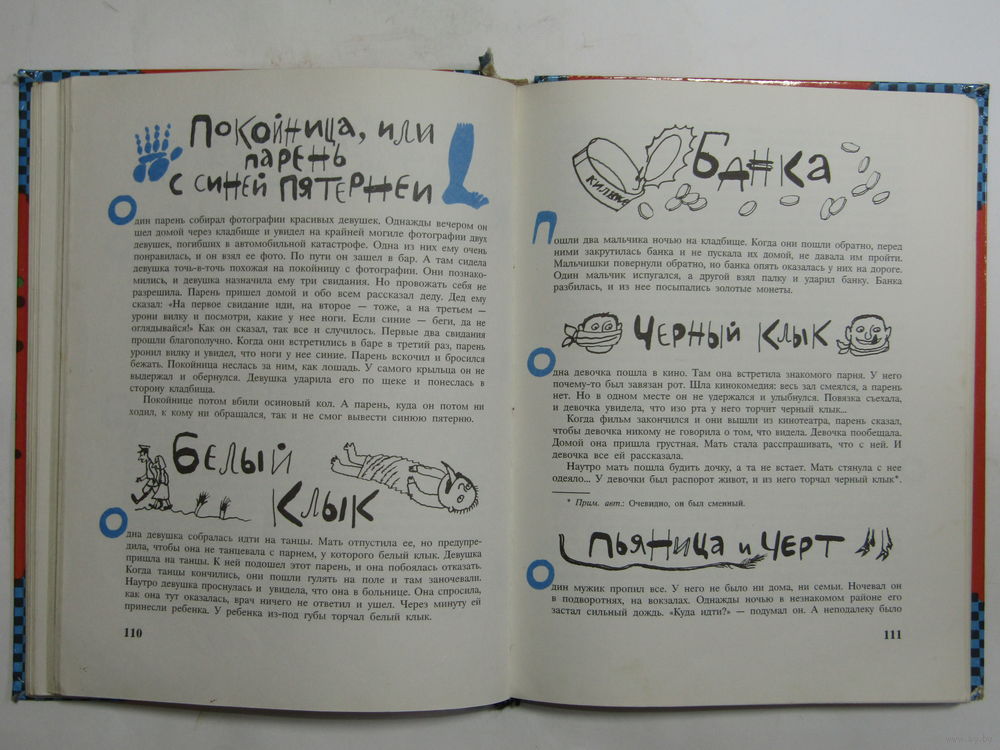 Покойница, или
парень
с синей пятерней
Один парень собирал фотографии красивых девушек. Однажды вечером он
шел домой через кладбище и увидел на крайней могиле фотографии двух
девушек, погибших в автомобильной катастрофе. Одна из них ему очень
понравилась, и он взял ее фото. По пути он зашел в бар. А там сидела
девушка точь-в-точь похожая на покойницу с фотографии. Они познако-
мились, и девушка назначила ему три свидания. Но провожать себя не
разрешила. Парень пришел домой и обо всем рассказал деду. Дед ему
сказал: «На первое свидание иди, на второе — тоже, а на третьем —
урони вилку и посмотри, какие у нее ноги. Если синие — беги, да не
оглядывайся!» Как он сказал, так все и случилось. Первые два свидания
прошли благополучно. Когда они встретились в баре в третий раз, парень
уронил вилку и увидел, что ноги у нее синие. Парень вскочил и бросился
бежать. Покойница неслась за ним, как лошадь. У самого крыльца он не
выдержал и обернулся. Девушка ударила его по щеке и понеслась в
сторону кладбища.
Покойнице потом вбили осиновый кол. А парень, куда он потом ни
ходил, к кому ни обращался, так и не смог вывести синюю пятерню.
Белый
Клык
Одна девушка собралась идти на танцы. Мать отпустила ее, но предупре-
дила, чтобы она не танцевала с парнем, у которого белый клык. Девушка
пришла на танцы. К ней подошел этот парень, и она побоялась отказать.
Когда танцы кончились, они пошли гулять на поле и там заночевали.
Наутро девушка проснулась и увидела, что она в больнице. Она спросила,
как она тут оказалась, врач ничего не ответил и ушел. Через минуту ей
принесли ребенка. У ребенка из-под губы торчал белый клык.
110
килька
Банка
Пошли два мальчика ночью на кладбище. Когда они пошли обратно, перед
ними закрутилась банка и не пускала их домой, не давала им пройти.
Мальчишки повернули обратно, но банка опять оказалась у них на дороге.
Один мальчик испугался, а другой взял палку и ударил банку. Банка
разбилась, и из нее посыпались золотые монеты.
Черный Клык
Одна девочка пошла в кино. Там она встретила знакомого парня. У него
почему-то был завязан рот. Шла кинокомедия: весь зал смеялся, а парень
нет. Но в одном месте он не удержался и улыбнулся. Повязка съехала,
и девочка увидела, что изо рта у него торчит черный клык...
Когда фильм закончился и они вышли из кинотеатра, парень сказал,
чтобы девочка никому не говорила о том, что видела. Девочка пообещала.
Домой она пришла грустная. Мать стала расспрашивать, что с ней. И
девочка все ей рассказала.
Наутро мать пошла будить дочку, а та не встает. Мать стянула с нее
одеяло... У девочки был распорот живот, и из него торчал черный клык*.
* Прим. авт.: Очевидно, он был сменный.
Пьяница и черт
Один мужик пропил все. У него не было ни дома, ни семьи. Ночевал он
в подворотнях, на вокзалах. Однажды ночью в незнакомом районе его
застал сильный дождь. «Куда идти?» — подумал он. А неподалеку было
111